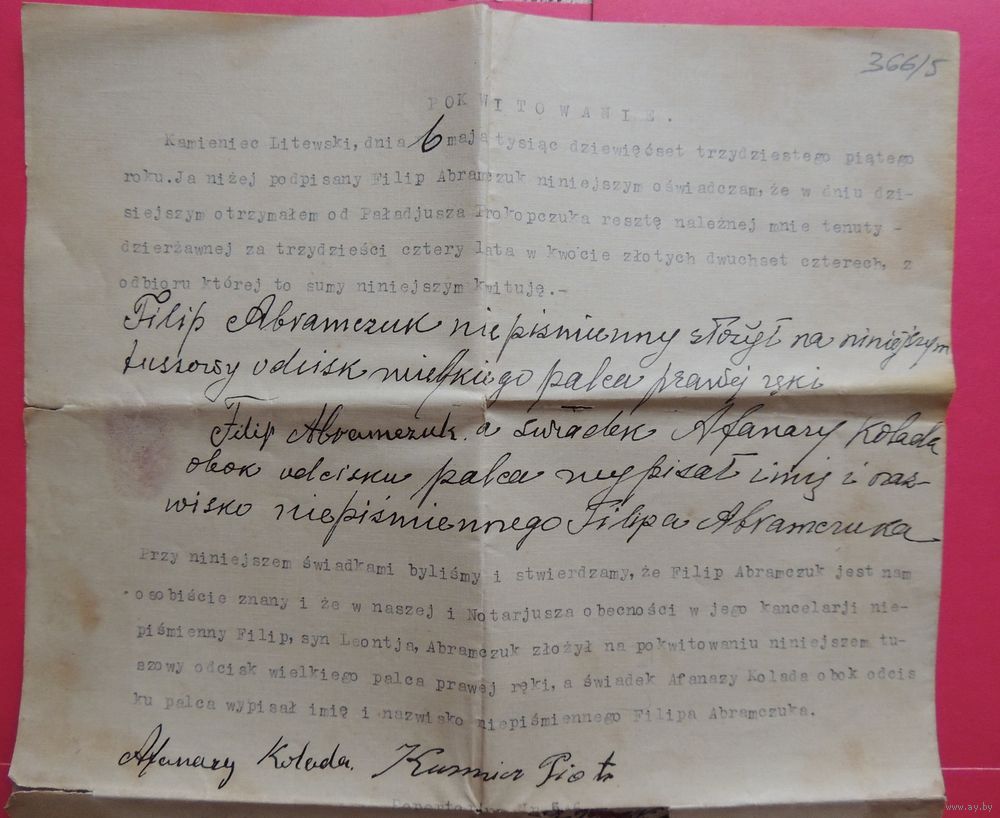 366/5
POKWITOWANIE.
Kamieniec Litewski, dnia 6 maja tysiąc dziewięćset trzydziestego piątego
roku. Ja niżej podpisany Filip Abramczuk niniejszym oświadczam, że w dniu dzi-
siejszym otrzymałem od Paładjusza Prokopczuka resztę należnej mnie tenuty -
dzierżawnej za trzydzieści cztery lata w kwocie złotych dwuchset czterech, z
odbioru której to sumy niniejszym kwituję.-
Filip Abramczuk niepiśmienny złożył na niniejszym
tuszowy odcisk wielkiego palca prawej ręki
Filip Abramczuk. a świadek Afanazy Kolada
obok odcisku palca wypisał imię i naz-
wisko niepiśmiennego Filipa Abramczuka
Przy niniejszem świadkami byliśmy i stwierdzamy, że Filip Abramczuk jest nam
osobiście znany i że w naszej i Notarjusza obecności w jego kancelarji nie-
piśmienny Filip, syn Leontja, Abramczuk złożył na pokwitowaniu niniejszem tu-
szowy odcisk wielkiego palca prawej ręki, a świadek Afanazy Kolada obok odcis
ku palca wypisał imię i nazwisko niepiśmiennego Filipa Abramczuka.
Afanazy Kolada. Piotr
www.ay.by